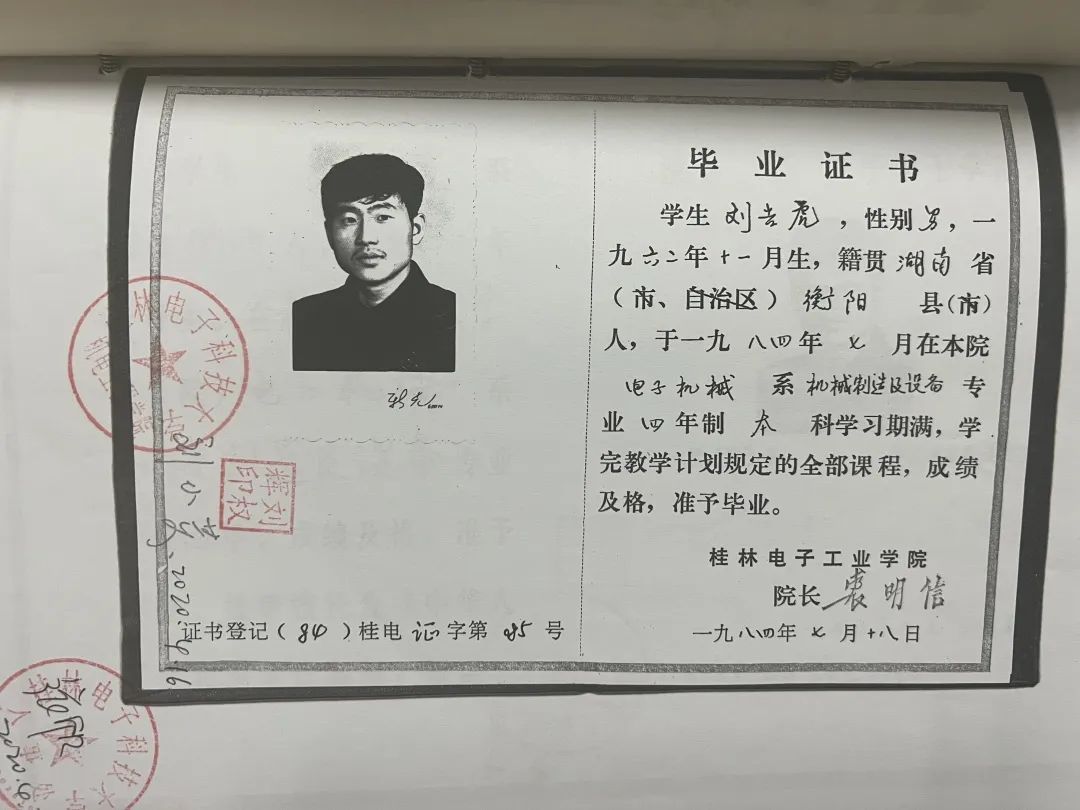 毕业证书
学生 刘吉虎，性别男，一
九六二年十一月生，籍贯湖南省
（市、自治区）衡阳 县（市）
人，于一九八四年七月在本院
电子机械 系 机械制造及设备 专
业四年制 本 科学习期满，学
完教学计划规定的全部课程，成绩
及格，准予毕业。
桂林电子工业学院
院长 裘明信
一九八四年七月十八日
证书登记（84）桂电证字第 85 号
林电子科技大学
刘权
辉印
2020.4.16
电子科技大学